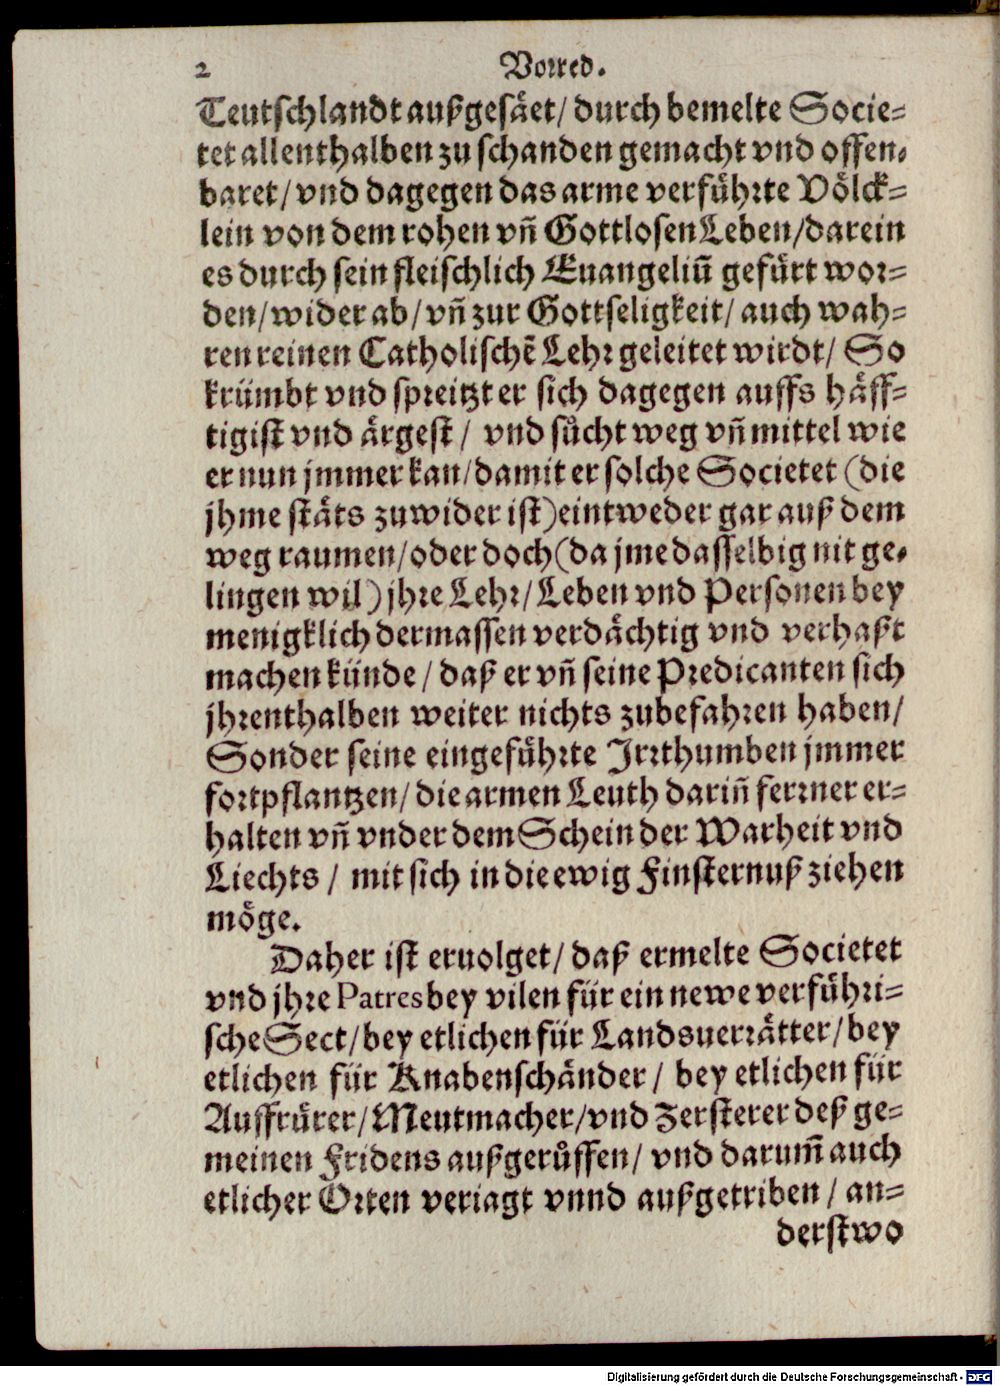 2 Vorred.
Teutschlandt außgesäet/ durch bemelte Socie-
tet allenthalben zu schanden gemacht vnd offen-
baret/ vnd dagegen das arme verführte Völck-
lein von dem rohen vñ Gottlosen Leben/ darein
es durch sein fleischlich Euangeliũ gefürt wor-
den/ wider ab/ vñ zur Gottseligkeit/ auch wah-
ren reinen Catholischẽ Lehr geleitet wirdt/ So
krümbt vnd spreitzt er sich dagegen auffs häff-
tigist vnd ärgest/ vnd sůcht weg vñ mittel wie
er nun jmmer kan/ damit er solche Societet (die
jhme stäts zuwider ist) eintweder gar auß dem
weg raumen/ oder doch (da jme dasselbig nit ge-
lingen wil) jhre Lehr/ Leben vnd Personen bey
menigklich dermassen verdächtig vnd verhaßt
machen künde/ daß er vñ seine Predicanten sich
jhrenthalben weiter nichts zubefahren haben/
Sonder seine eingeführte Irrthumben jmmer
fortpflantzen/ die armen Leuth dariñ ferrner er-
halten vñ vnder dem Schein der Warheit vnd
Liechts/ mit sich in die ewig Finsternuß ziehen
möge.
Daher ist eruolget/ daß ermelte Societet
vnd jhre Patres bey vilen für ein newe verführi-
sche Sect/ bey etlichen für Landsuerrätter/ bey
etlichen für Knabenschänder/ bey etlichen für
Auffrürer/ Meutmacher/ vnd Zersterer deß ge-
meinen Fridens außgerůffen/ vnd darum̃ auch
etlicher Orten veriagt vnnd außgetriben/ an-
derstwo
Digitalisierung gefördert durch die Deutsche Forschungsgemeinschaft - DFG